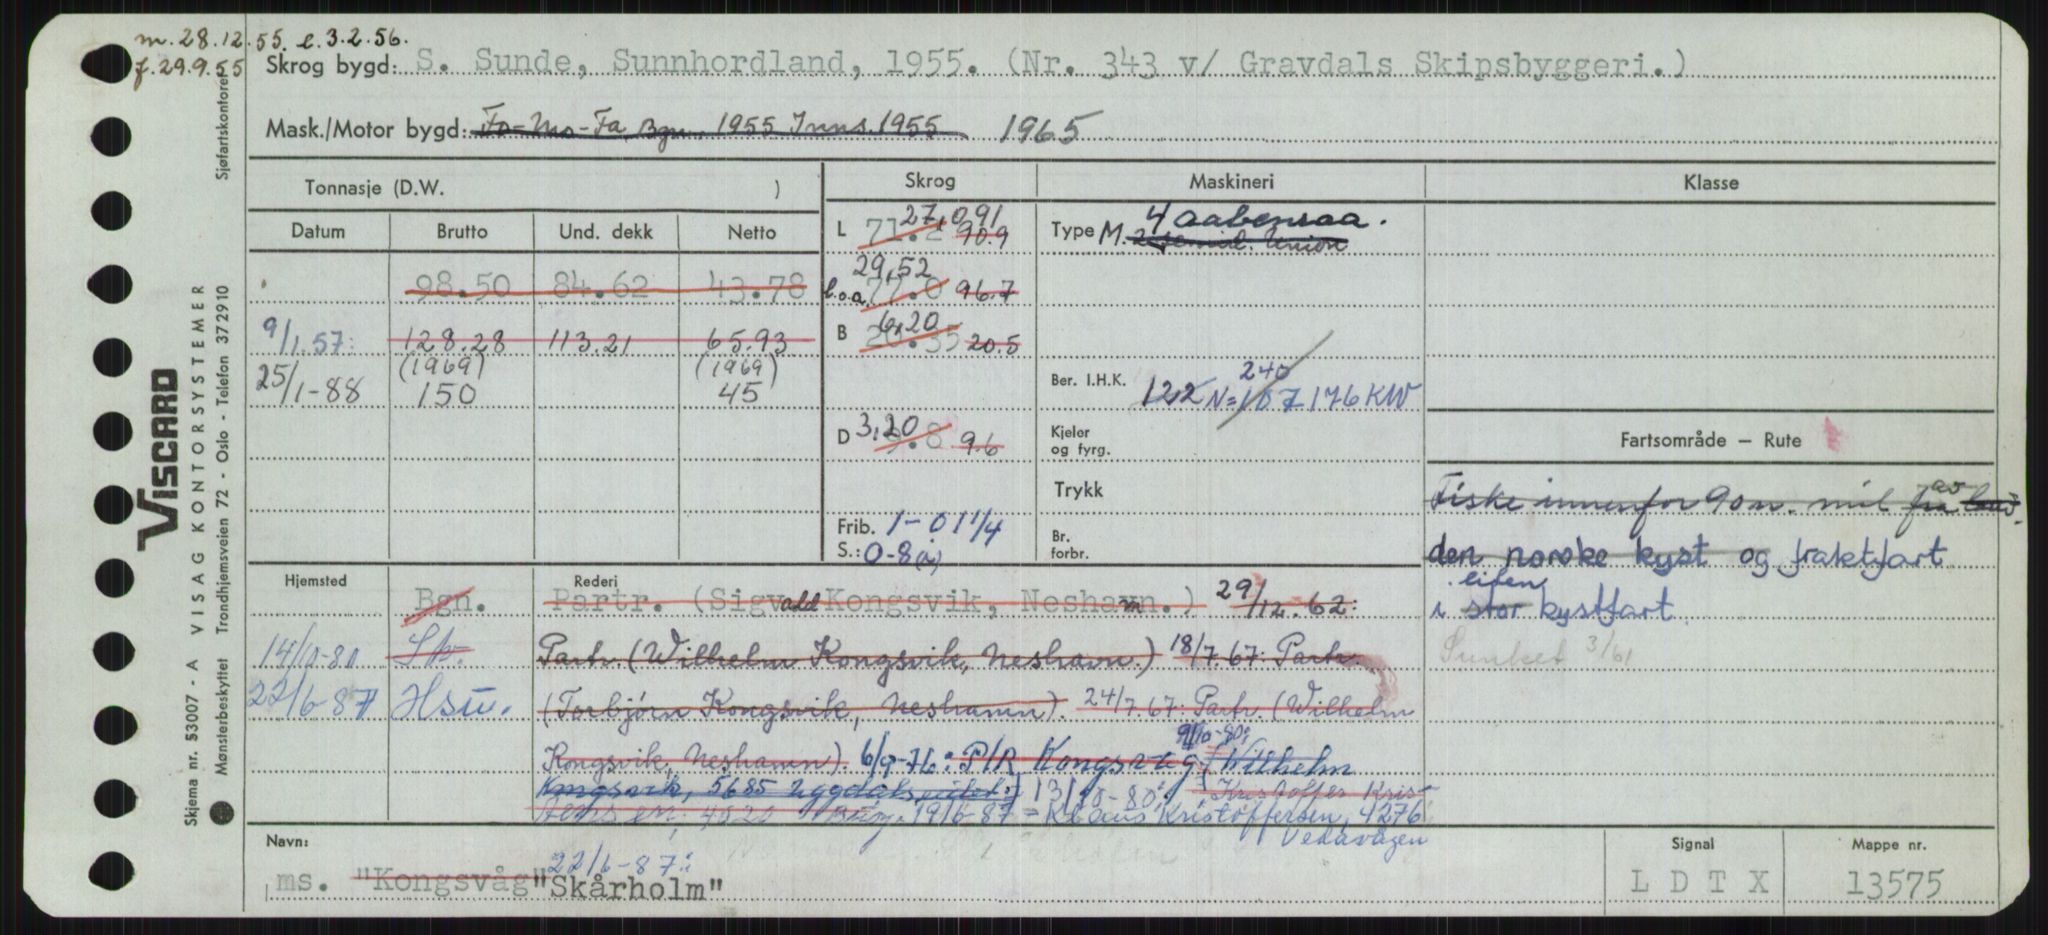 m. 28.12.55. l. 3.2.56.
f. 29.9.55
Skrog bygd: S. Sunde, Sunnhordland, 1955. (Nr. 343 v/ Gravdals Skipsbyggeri.)
Mask./Motor bygd: Fo-Mo-Fa, Bgn. 1955 Inns. 1955 1965
Tonnasje (D.W. )
Skrog
Maskineri
Klasse
Datum Brutto Und. dekk Netto
98.50 84.62 43.78
9/1.57: 128.28 113.21 65.93
(1969) (1969)
25/1-88 150 45
27,091
L 71.2 90.9
29,52
l.o.a. 77.0 96.7
6,20
B 20.35 20.5
3,20
D 9.8 9.6
Frib. 1-01 1/4
S.: 0-8
4 aabenraa.
Type M. 2 Union
240
Ber. I.H.K. 122 N=187 176 KW
Kjeler og fyrg.
Trykk
Br. forbr.
Fartsområde – Rute
av
Fiske innenfor 90 n. mil fra land.
den norske kyst og fraktfart
liten
i stor kystfart.
Sunket 3/61
Hjemsted Rederi
Bgn. Partr. (Sigvald Kongsvik, Neshavn.) 29/12.62:
14/10-80 Partr. (Wilhelm Kongsvik, Neshavn.) 18/7.67: Partr.
22/6-87 Hsu. (Torbjørn Kongsvik, Neshamn). 24/7.67: Partr. (Wilhelm
9/10-80:
Kongsvik, Neshamn). 6/9-76: P/R Kongsvåg (Wilhelm
Kongsvik, 5685 Uggdalseidet) 13/10-80: Kristoffer Kris-
4020 19/6-87 = Klaus Kristoffersen, 4276
Vedavågen
Navn: 22/6-87:
ms. "Kongsvåg" "Skårholm"
Signal
L D T X
Mappe nr.
13575
VISCARD
VISAG KONTORSYSTEMER
Skjema nr. 53007 - A
Mønsterbeskyttet Trondhjemsveien 72 - Oslo - Telefon 372910
Sjøfartskontoret